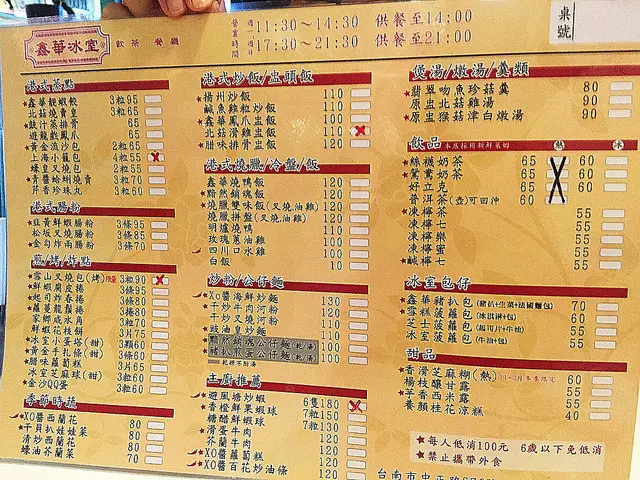 鑫華冰室
飲茶 餐廳
營業時間
週一 11:30～14:30 供餐至14:00
週日 17:30～21:30 供餐至21:00
桌號
港式蒸點
★鑫華靚蝦餃 3粒95
北菇燒賣皇 3粒85
★豉汁蒸排骨 65
遊龍戲鳳爪 65
★黃金流沙包 2粒65
上海小籠包 4粒55
蠔皇叉燒包 2粒55
★青醬蛤蜊燒賣 3粒70
芹香珍珠丸 3粒65
港式腸粉
★韭黃鮮蝦腸粉 3條95
松坂叉燒腸粉 3條85
★金勾炸兩腸粉 3條70
煎/烤/炸點
★雪山叉燒包(烤) 3粒90
鮮蝦腐皮捲 3條90
★起司炸春捲 3條80
★蘿蔓龍鬚捲 3條80
家鄉鹹水角 2粒70
鮮蝦花枝餅 3片75
★冰室小蛋塔(甜) 3顆60
★黃金手扎條(甜) 3條60
★臘味蘿蔔糕 3片65
冰室芝麻球(甜) 3粒60
★金沙QQ蛋 3粒60
季節時蔬
★XO醬西蘭花 80
★干貝扒娃娃菜 80
清炒西蘭花 70
蠔油芥蘭菜 70
港式炒飯/盅頭飯
★揚州炒飯 110
鹹魚雞粒炒飯 110
★鑫華鳳爪盅飯 110
★北菇滑雞盅飯 110
★臘味排骨盅飯 120
港式燒臘/冷盤/飯
鑫華燒鴨飯 120
★黯然銷魂飯 120
★燒臘雙味飯(叉燒,油雞) 120
燒臘拼盤(叉燒,油雞) 120
明爐燒鴨 120
玫瑰蔥油雞 120
四川口水雞 120
白飯 10
炒粉/公仔麵
★XO醬海鮮炒麵 130
★干炒牛肉河粉 110
干炒叉燒河粉 110
★豉油皇炒麵 110
黯然銷魂公仔麵(乾/湯) 100
豬扒煎蛋公仔麵(乾/湯) 100
主廚推薦
★避風塘炒蝦 6隻180
★香橙鮮果蝦球 7粒150
糖醋鮮蝦球 7粒130
★滑蛋牛肉 120
芥蘭牛肉 120
★XO醬蘿蔔糕 120
★XO醬百花炒油條 120
煲湯/燉湯/羹類
★翡翠吻魚珍菇羹 80
★原盅北菇雞湯 90
★原盅猴菇津白燉湯 90
飲品
熱 冰
★絲襪奶茶 65 60
★鴛鴦奶茶 65 60
好立克 65 60
普洱茶(壺)可回沖 60
★凍檸茶 55
★凍檸七 55
凍檸樂 55
凍檸蜜 55
★鹹檸七 55
冰室包仔
★鑫華豬扒包(豬扒+生菜+法國麵包) 70
★雪糕菠蘿包 60
芝士菠蘿包(起司片+牛油) 55
★冰室菠蘿包(牛油+包) 55
甜品
★香滑芝麻糊(熱) 60
楊枝釀甘露 55
★芋香西米露 55
養顏桂花涼糕 40
★每人低消100元 6歲以下免低消
★禁止攜帶外食